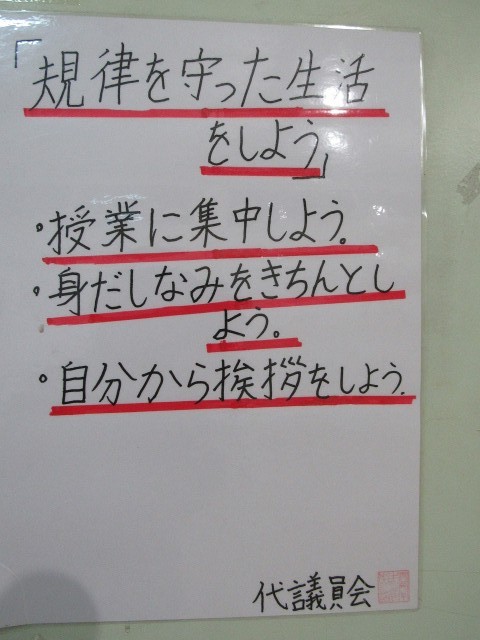 「規律を守った生活
をしよう」
・授業に集中しよう。
・身だしなみをきちんとし
よう。
・自分から挨拶をしよう.
代議員会